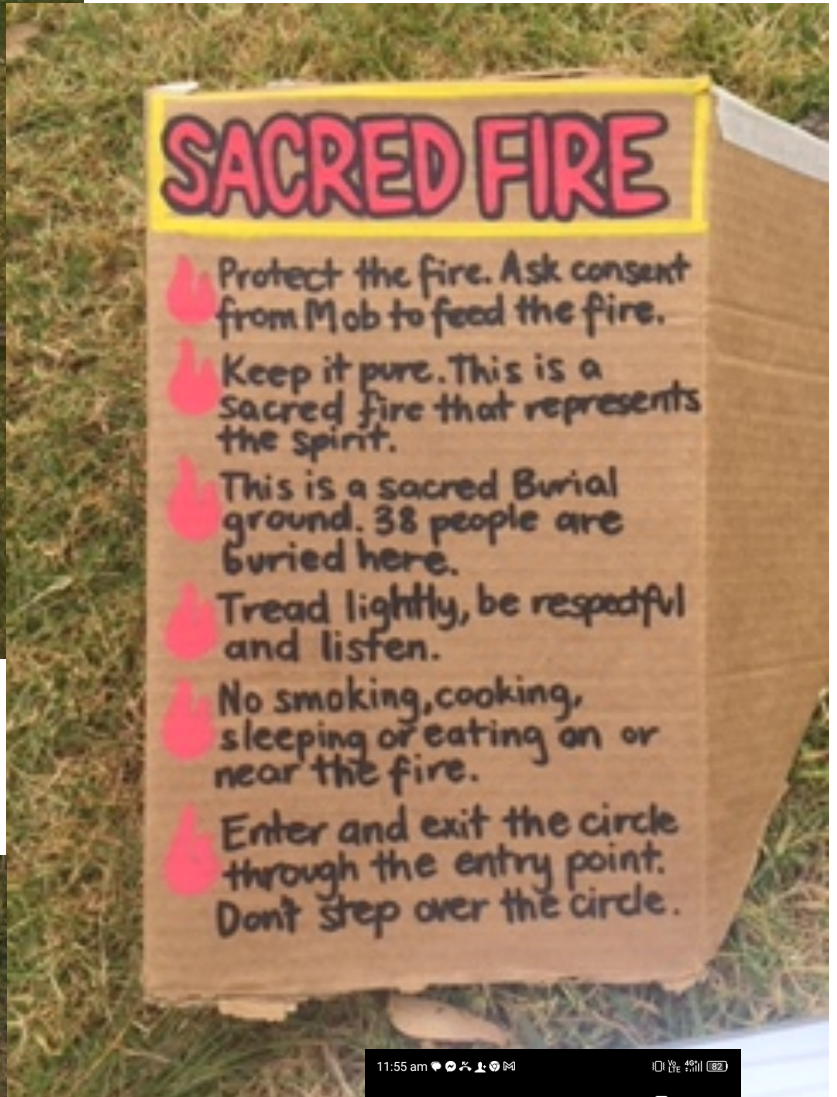 SACRED FIRE
Protect the fire. Ask consent
from Mob to feed the fire.
Keep it pure. This is a
sacred fire that represents
the spirit.
This is a sacred Burial
ground. 38 people are
buried here.
Tread lightly, be respectful
and listen.
No smoking, cooking,
sleeping or eating on or
near the fire.
Enter and exit the circle
through the entry point.
Don't step over the circle.
11:55 am Vo LTE 4G+ 82